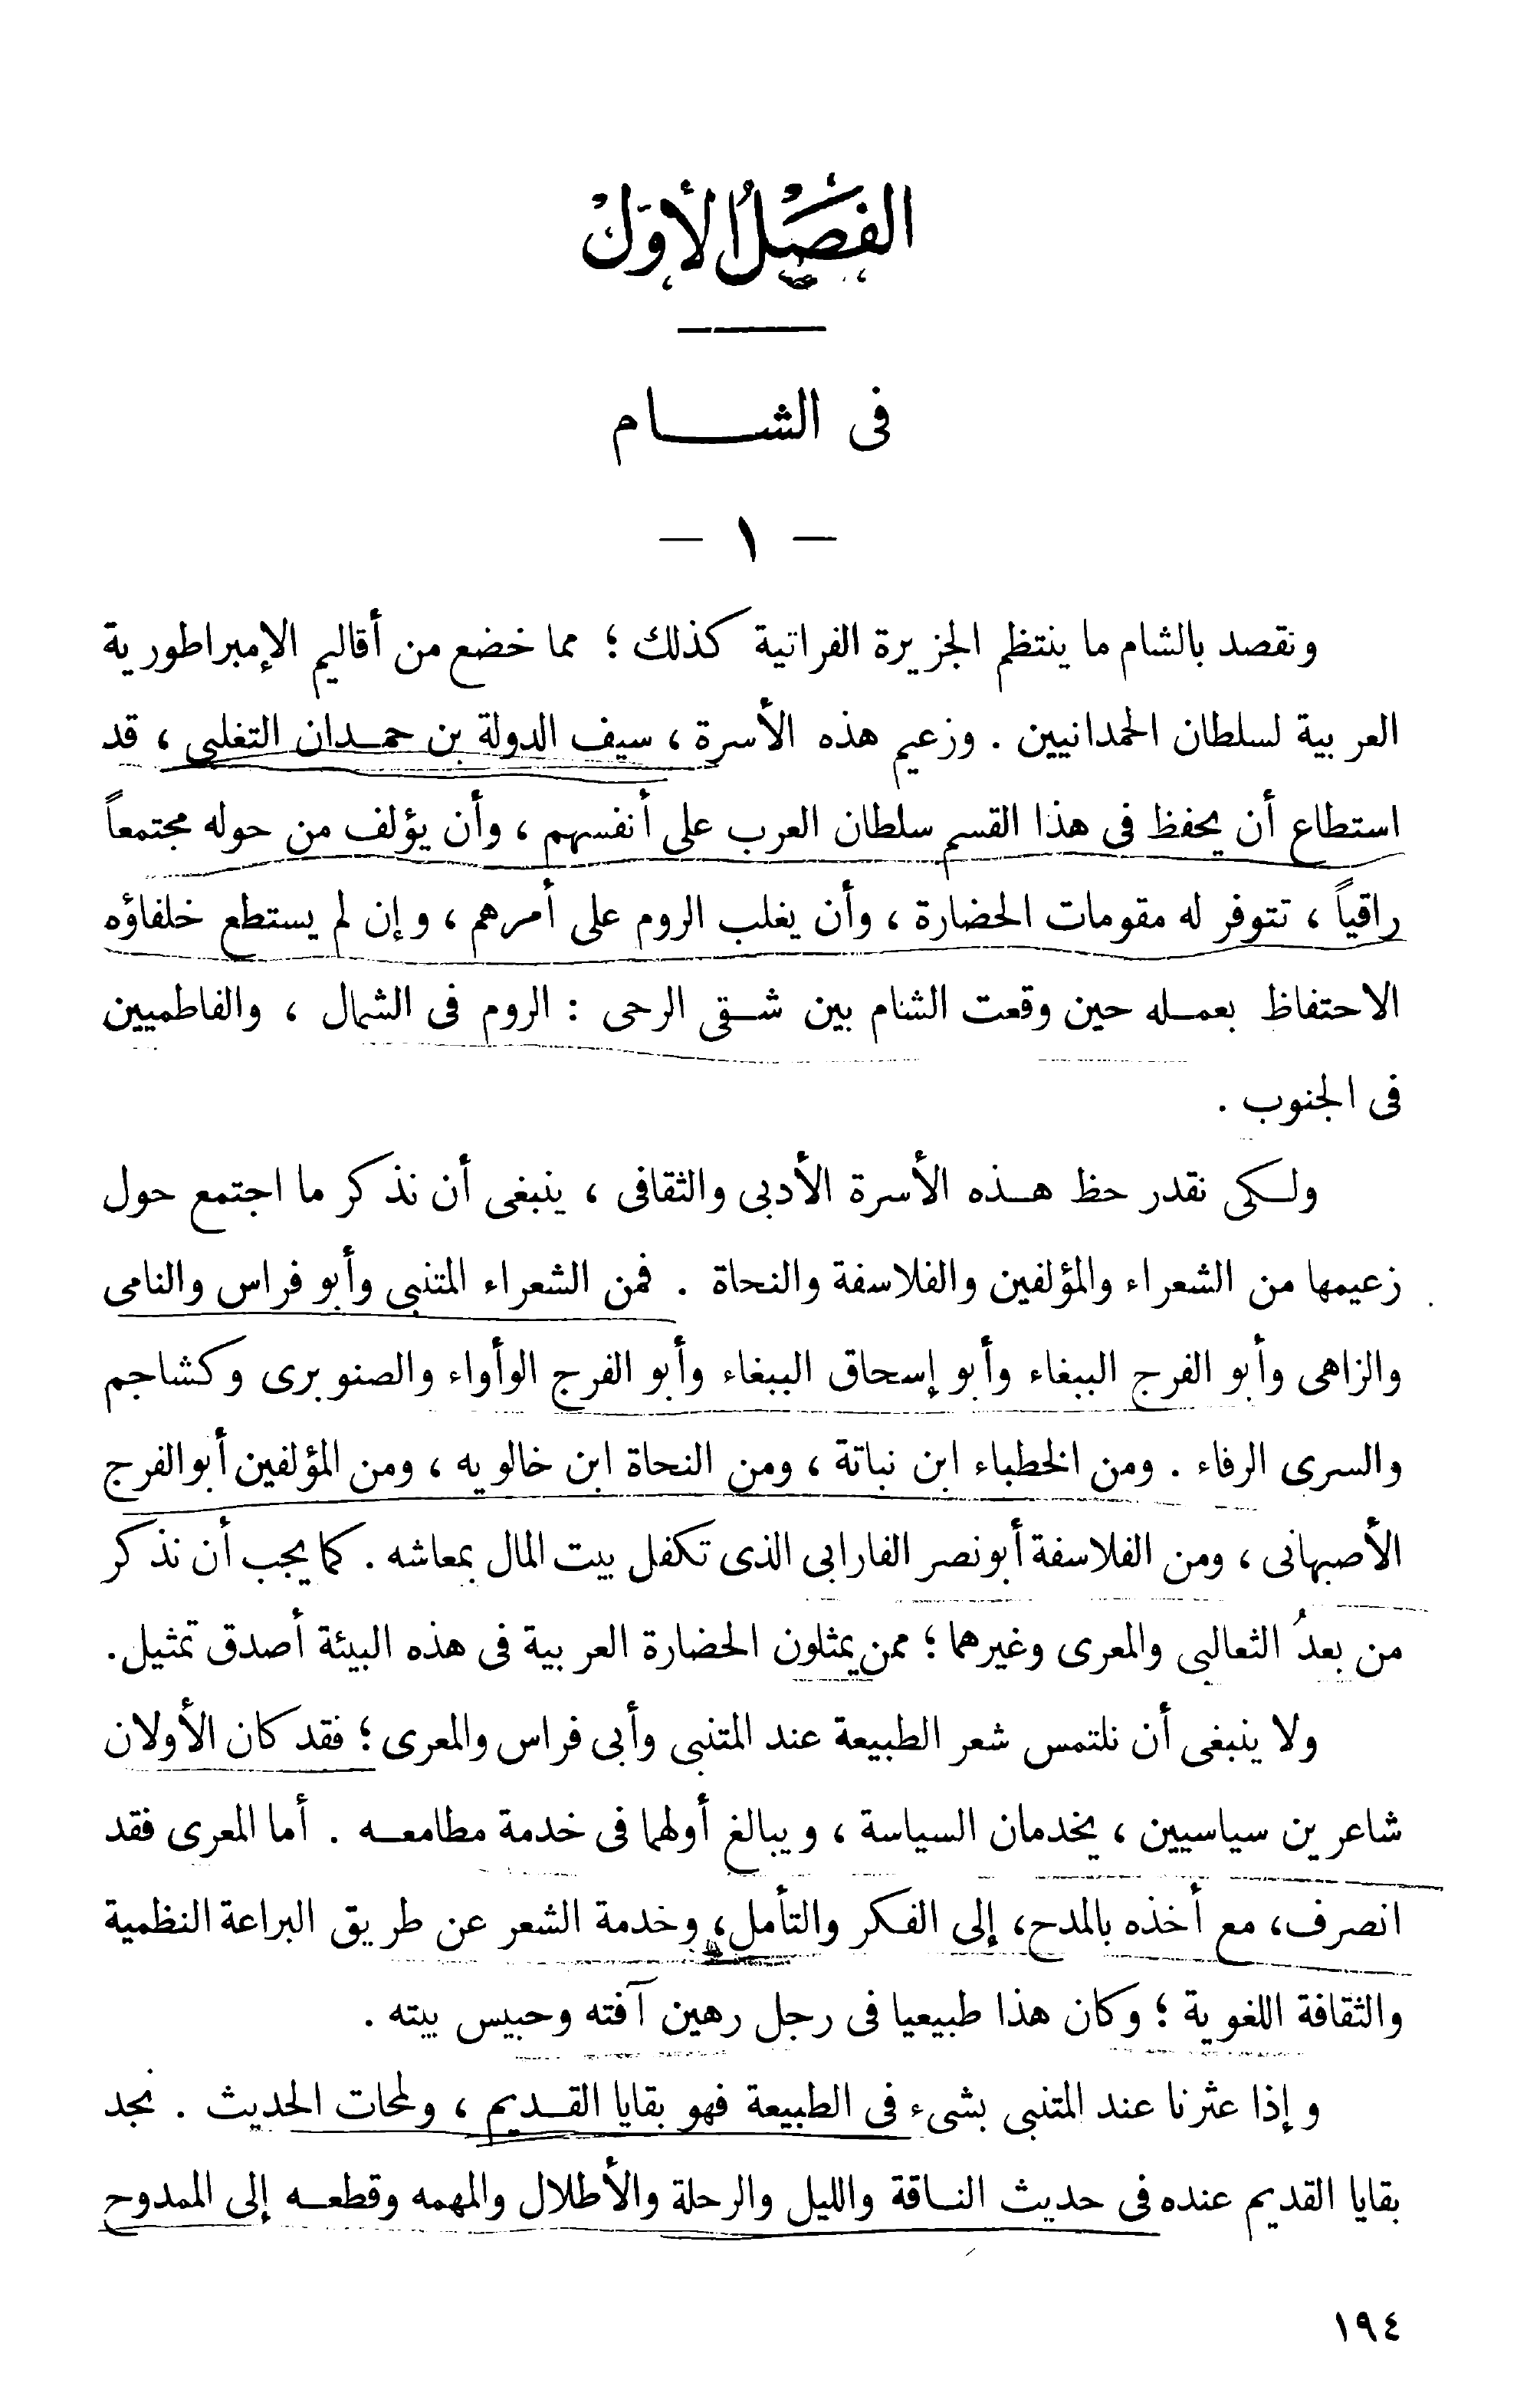 الفصل الأول
فى الشـــام
— ١ —
ونقصد بالشام ما ينتظم الجزيرة الفراتية كذلك ؛ مما خضع من أقاليم الإمبراطورية
العربية لسلطان الحمدانيين . وزعيم هذه الأسرة ، سيف الدولة بن حمـدان التغلبى ، قد
استطاع أن يحفظ فى هذا القسم سلطان العرب على أنفسهم ، وأن يؤلف من حوله مجتمعاً
راقياً ، تتوفر له مقومات الحضارة ، وأن يغلب الروم على أمرهم ، وإن لم يستطع خلفاؤه
الاحتفاظ بعمـله حين وقعت الشام بين شـقى الرحى : الروم فى الشمال ، والفاطميين
فى الجنوب .
ولـكى نقدر حظ هـذه الأسرة الأدبى والثقافى ، ينبغى أن نذكر ما اجتمع حول
زعيمها من الشعراء والمؤلفين والفلاسفة والنحاة . فمن الشعراء المتنبى وأبو فراس والنامى
والزاهى وأبو الفرج الببغاء وأبو إسحاق الببغاء وأبو الفرج الوأواء والصنوبرى وكشاجم
والسرى الرفاء . ومن الخطباء ابن نباتة ، ومن النحاة ابن خالويه ، ومن المؤلفين أبو الفرج
الأصبهانى ، ومن الفلاسفة أبو نصر الفارابى الذى تكفل بيت المال بمعاشه . كما يجب أن نذكر
من بعدُ الثعالبى والمعرى وغيرهما ؛ ممن يمثلون الحضارة العربية فى هذه البيئة أصدق تمثيل.
ولا ينبغى أن نلتمس شعر الطبيعة عند المتنبى وأبى فراس والمعرى ؛ فقد كان الأولان
شاعرين سياسيين ، يخدمان السياسة ، ويبالغ أولهما فى خدمة مطامعـه . أما المعرى فقد
انصرف، مع أخذه بالمدح، إلى الفكر والتأمل، وخدمة الشعر عن طريق البراعة النظمية
والثقافة اللغوية ؛ وكان هذا طبيعيا فى رجل رهين آفته وحبيس بيته .
وإذا عثرنا عند المتنبى بشىء فى الطبيعة فهو بقايا القـديم ، ولمحات الحديث . نجد
بقايا القديم عنده فى حديث النـاقة والليل والرحلة والأطلال والمهمه وقطعـه إلى الممدوح
١٩٤